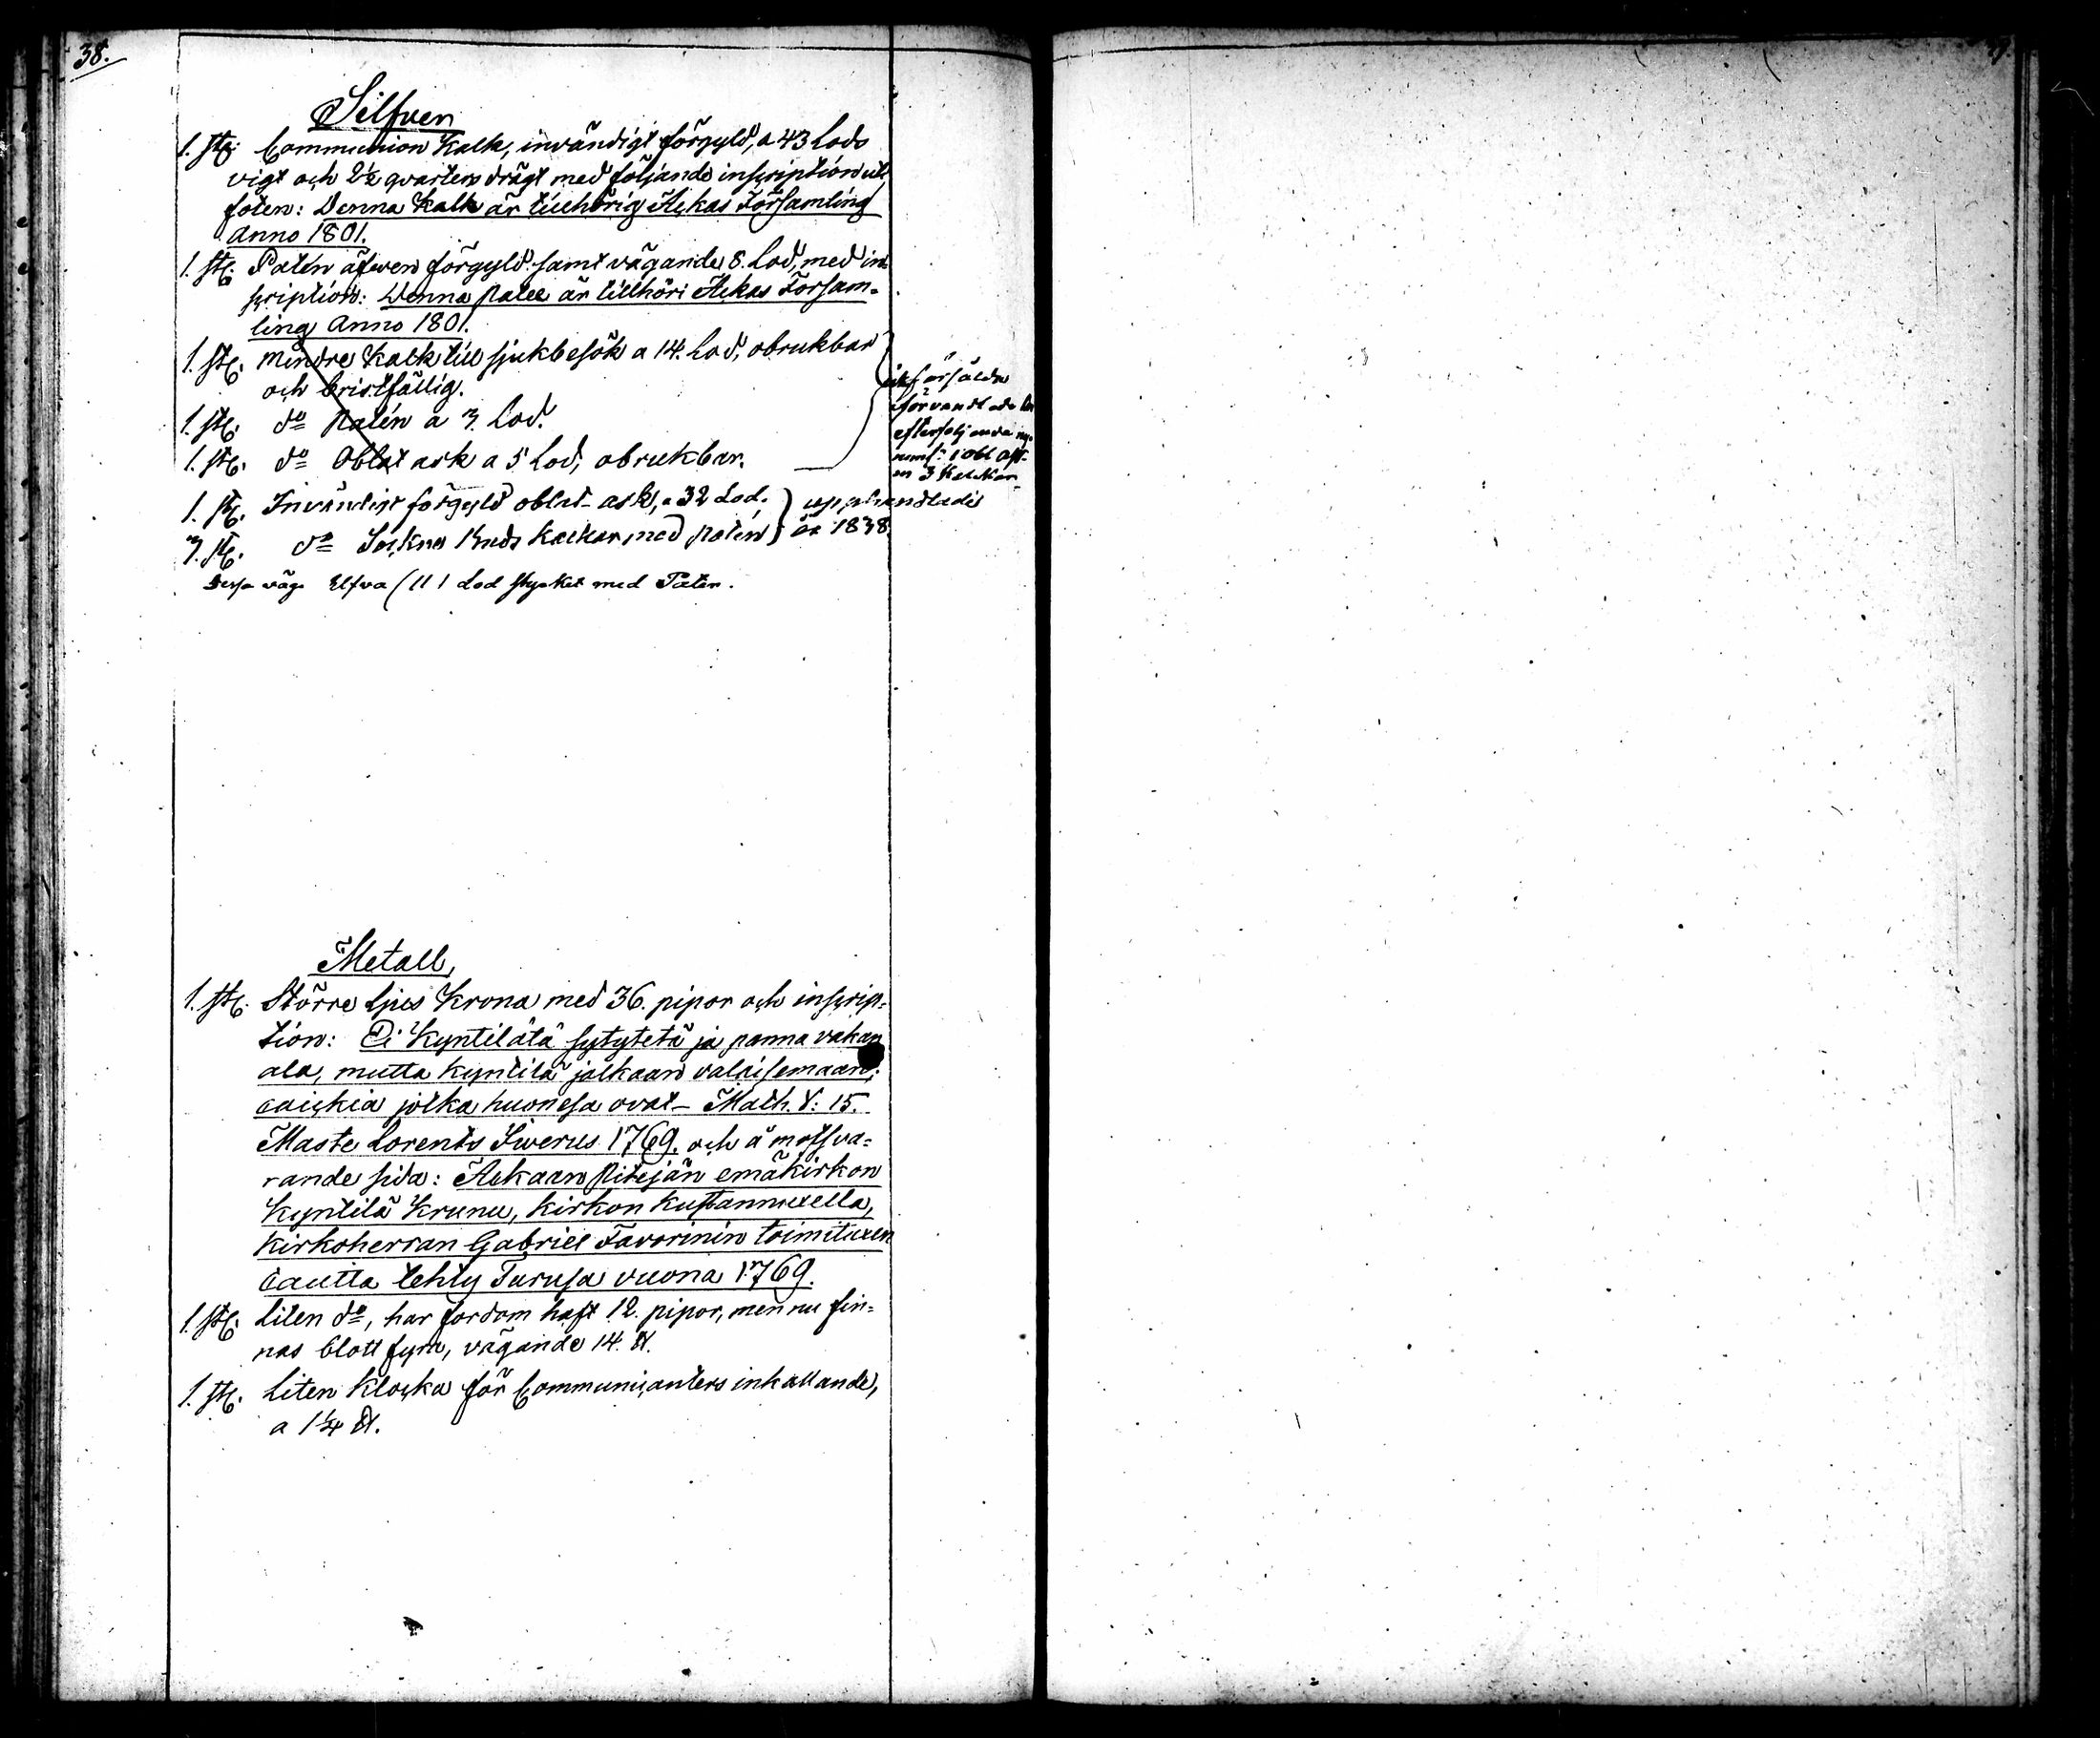 38.
Silfver
1. st. Communion Kalk, invändigt förgyld, a 43 Lods
vigt och 2½ qvarters drägt med följande inscription uti
foten: Denna Kalk är tillhörig Ackas Församling
Anno 1801.
1. st. Patén äfwen förgyld samt vägande 8. Lod, med in-
scription: Denna Patel är tillhöri Ackas Försam-
ling Anno 1801.
1. st. mindre Kalk till sjukbesök a 14. Lod, obrukbar
och bristfällig.
1. st. do Patén a 3. Lod.
1. st. do Oblat ask a 5 Lod, obrukbar.
försålda
förvandlade
efterföljande
1 obl ask
3 Kalkar
1. st. Invändigt förgyld oblat-ask, a 32 Lod. upphandlades
3. st. do Kalkar med Patén år 1838.
Dessa väga Elfva (11) Lod stycket med Paten.
Metall,
1. st. Större Ljus Krona med 36. pipor och inscrip-
tion: Ei Kyntilätä sytytetä ja panna vakan
ala, mutta kyntilä jalkaan valaisemaan,
caickia jotka huonesa ovat - Math. V: 15.
Maste Lorents Siverus 1769. och å motsva-
rande sida: Ackaan Pitejän emäkirkon
Kyntilä Krunu, Kirkon Kustannuxella,
Kirkoherran Gabriel Favorinin toimituxen
cautta tehty Turusa vuona 1769.
1. st. Liten do, har fordom haft 12. pipor, men nu fin-
nas blott fyra, vägande 14. ℔.
1. st. Liten Klocka för Communicanters inkallande,
a 1¼ ℔.